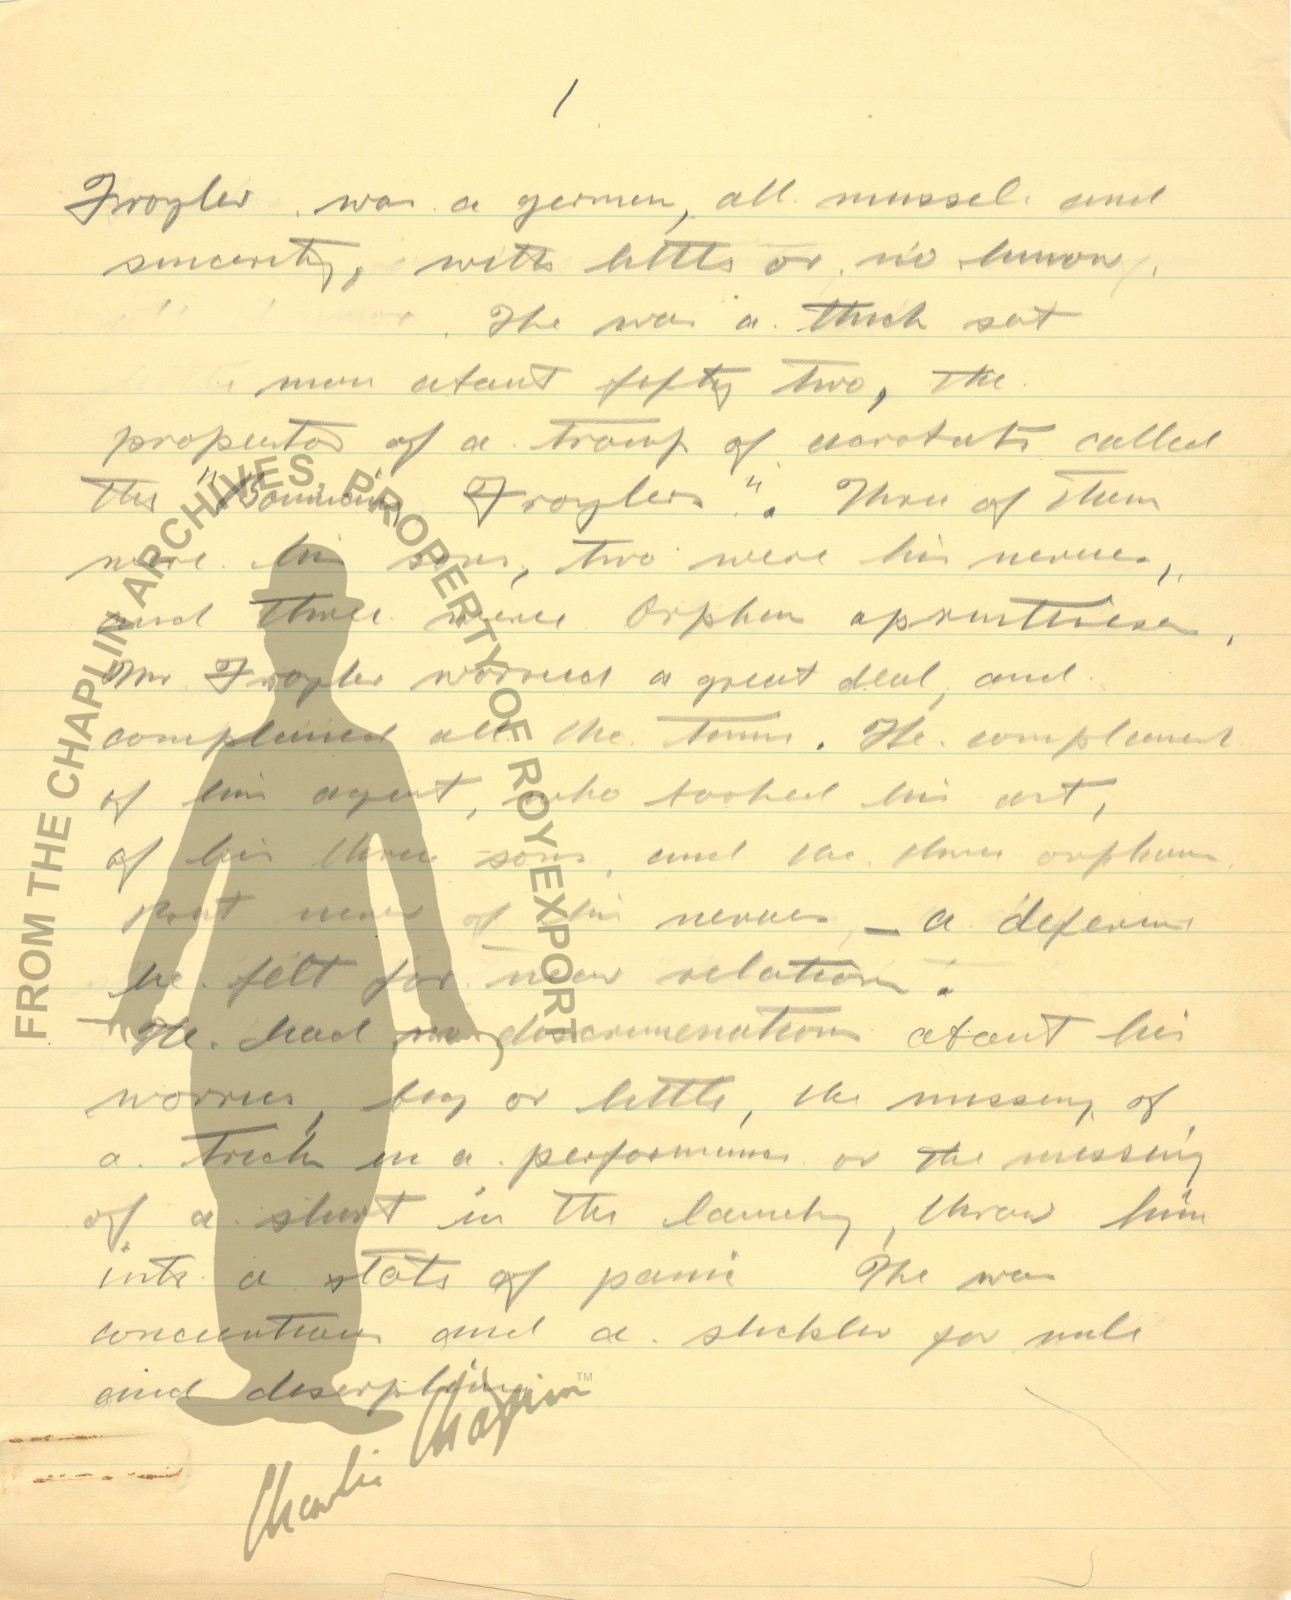 1
Froyler was a germen, all mussel and
sincerity, with little or no humor,
The was a thick set
man about fifty two, the
of a troup of called
the " Froylers". Three of them
were his sons, two were his neveus,
and three were orphan
Mr. Froyler worried a great deal, and
complained all the time. He
of his agent, who booked his act,
of his three sons, and the three orphans
but never of his neveus – a
he felt for near relation.
He had no discrimenation about his
worries, big or little, the missing of
a trick in a performance or the missing
of a shirt in the laundry, throw him
into a state of panic The was
and a stickler for rule
and
FROM THE CHAPLIN ARCHIVES. PROPERTY OF ROY EXPORT
Charlie Chaplin™